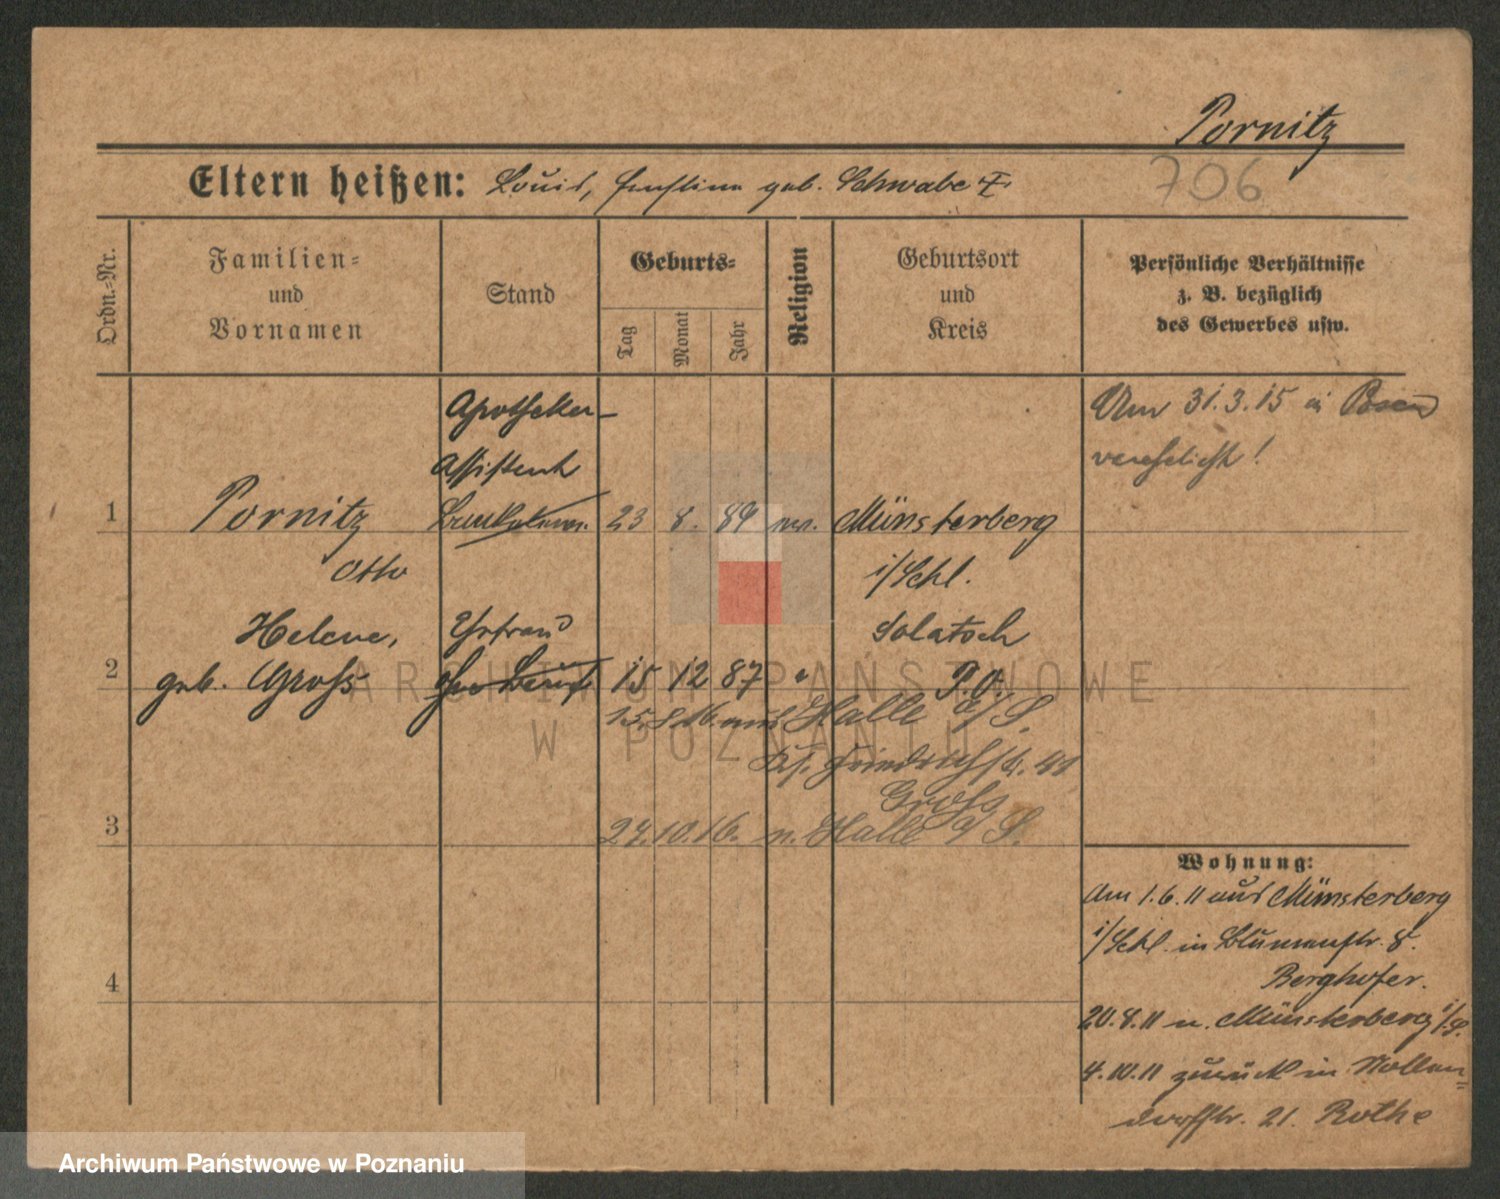 Pornitz
706
Eltern heißen: Louis, Ernstine geb. Schwabe
Ordn.-Nr.
Familien-
und
Vornamen
Stand
Geburts-
Tag
Monat
Jahr
Religion
Geburtsort
und
Kreis
Persönliche Verhältnisse
z. B. bezüglich
des Gewerbes usw.
Apotheker-
Assistent
Am 31.3.15 in Posen
verehelicht!
1 Pornitz 23 8. 89 Münsterberg
Otto i/Schl.
Helene, Ehefrau Solatsch
2 geb. Gross 15 12 87 " P.O.
15.8.16. aus Halle a/S.
Friedrichstr.
Gross
3 27.10.16. n. Halle a/S.
Wohnung:
Am 1.6.11 aus Münsterberg
i/Schl. in Blumenstr. 8.
Berghofer.
4
20.8.11 n. Münsterberg i/S.
4.10.11 zurück in Nollen-
dorfstr. 21. Rothe
ARCHIWUM PAŃSTWOWE
W POZNANIU
Archiwum Państwowe w Poznaniu